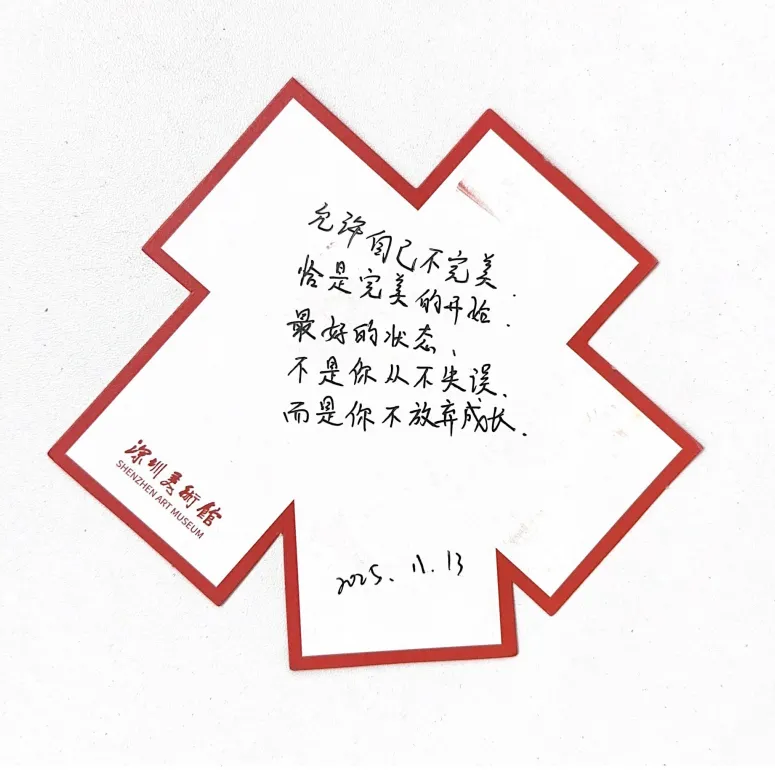 允许自己不完美.
恰是完美的开始.
最好的状态、
不是你从不失误.
而是你不放弃成长.
深圳美術館
SHENZHEN ART MUSEUM
2025.11.13